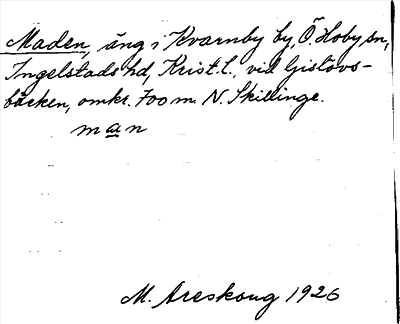 Maden, äng i Kvarnby by, Ö. Hoby sn,
Ingelstads hd, Krist. l., vid Gislövs-
bäcken, omkr. 700 m N. Skillinge.
man
M. Areskoug 1926